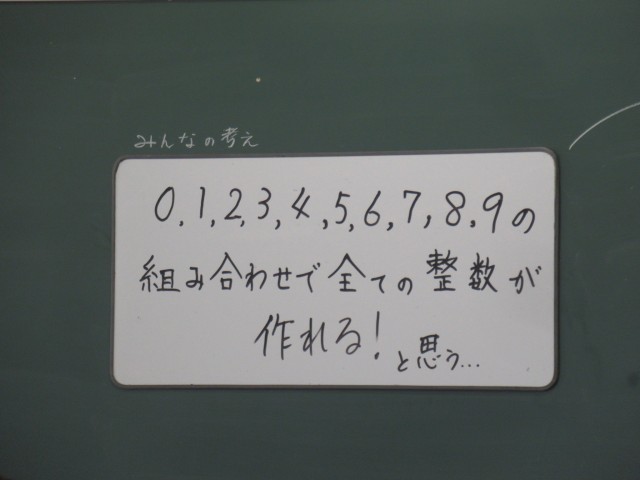 みんなの考え
0,1,2,3,4,5,6,7,8,9の
組み合わせで全ての整数が
作れる!と思う…